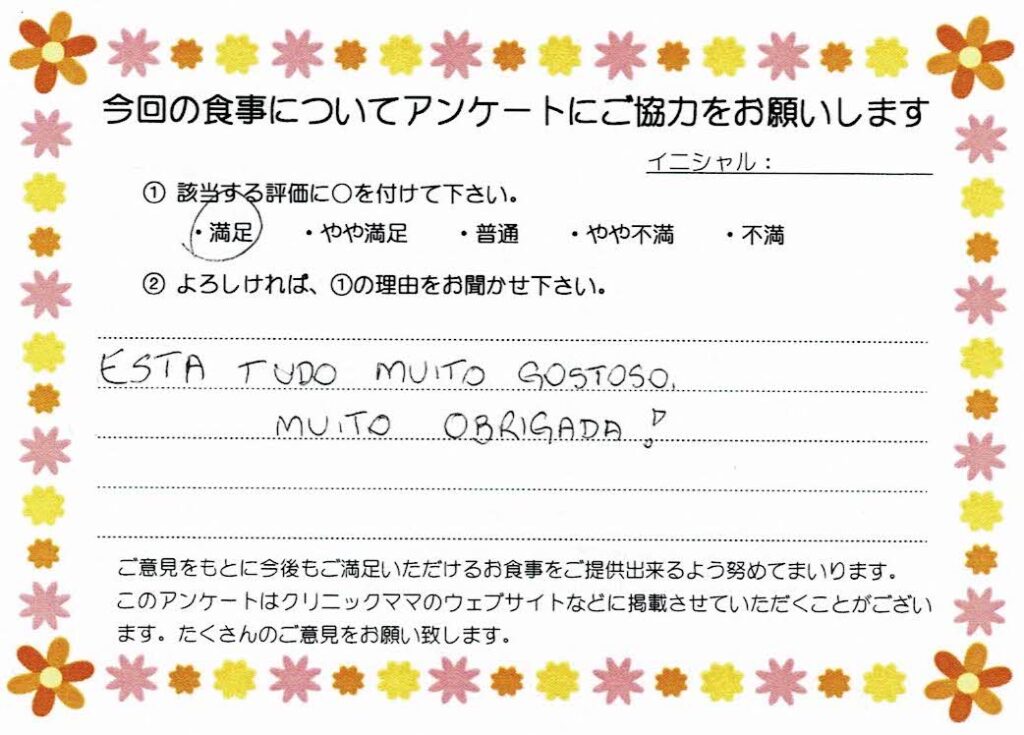 今回の食事についてアンケートにご協力をお願いします
イニシャル：
① 該当する評価に○を付けて下さい。
・満足 ・やや満足 ・普通 ・やや不満 ・不満
② よろしければ、①の理由をお聞かせ下さい。
ESTA TUDO MUITO GOSTOSO.
MUITO OBRIGADA!
ご意見をもとに今後もご満足いただけるお食事をご提供出来るよう努めてまいります。
このアンケートはクリニックママのウェブサイトなどに掲載させていただくことがござい
ます。たくさんのご意見をお願い致します。